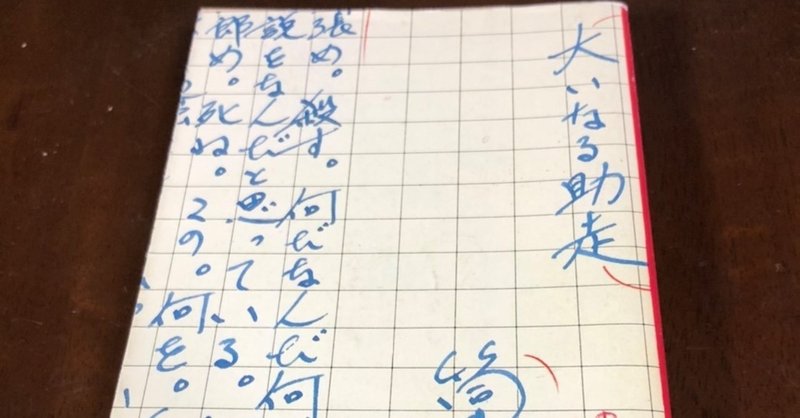 大いなる助走
筒
張め。殺す。何だなんだ。何
説をなんだと思っている。
郎め。死ね。この。何を。